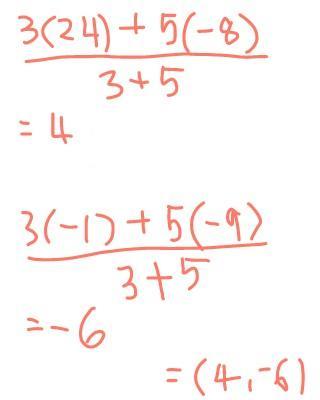 3(24) + 5(-8)
3+5
= 4
3(-1) + 5(-9)
3+5
= -6
= (4, -6)